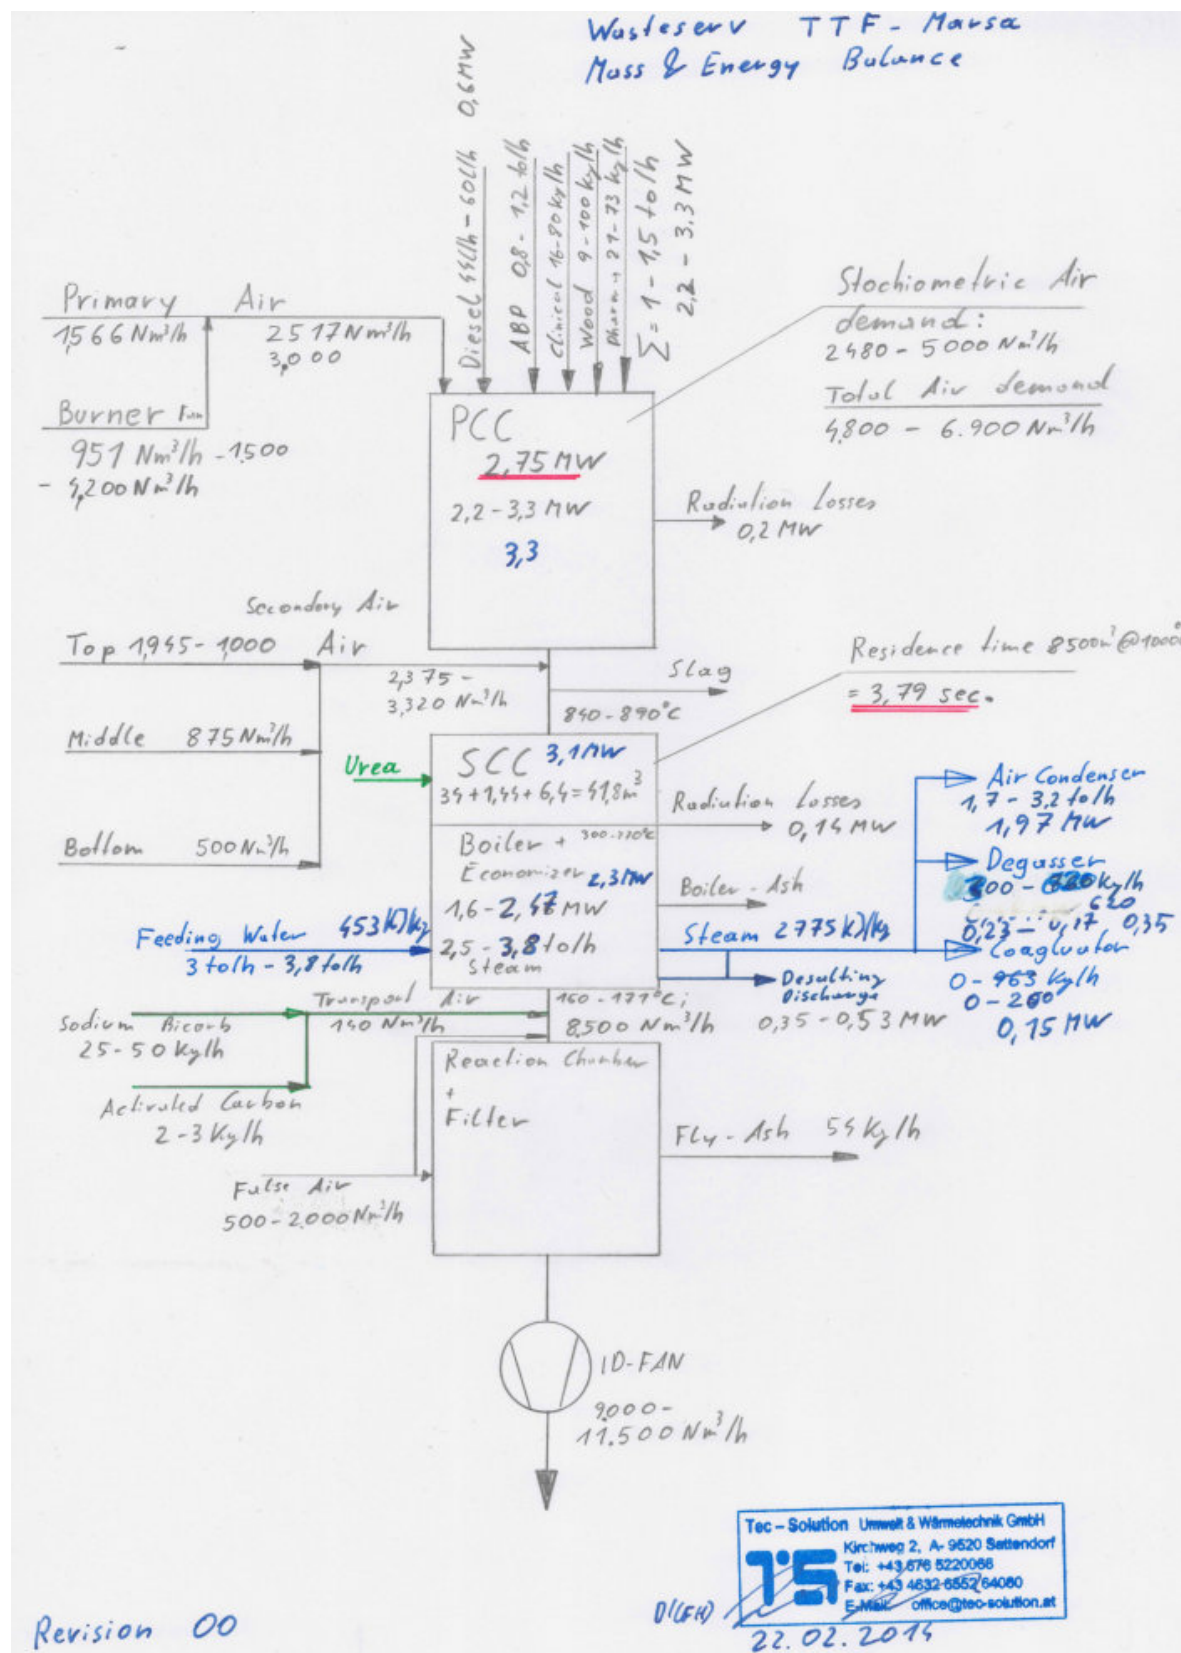 Wasteserv TTF - Marsa
Mass & Energy Balance
Diesel 44l/h - 60l/h 0,6MW
ABP 0,8 - 1,2 to/h
Clinical 16-80 kg/h
Wood 9-100 kg/h
Pharm. 21-73 kg/h
Σ = 1 - 1,5 to/h
2,2 - 3,3 MW
Primary Air
1,566 Nm³/h
2517 Nm³/h
3,000
Burner Fan
951 Nm³/h - 1,500
- 4,200 Nm³/h
Stochiometric Air
demand:
2480 - 5000 Nm³/h
Total Air demand
4,800 - 6.900 Nm³/h
PCC
2,75 MW
2,2 - 3,3 MW
3,3
Radiation Losses
0,2 MW
Secondary Air
Top 1,945 - 1,000 Air
2,375 -
3,320 Nm³/h
Middle 875 Nm³/h
Bottom 500 Nm³/h
Slag
840 - 890°C
Residence time 8500m³@1000°
= 3,79 sec.
Urea
SCC 3,1MW
34 + 1,44 + 6,4 = 41,8m³
Radiation Losses
0,14 MW
Boiler +
Economizer 2,3MW
1,6 - 2,47 MW
2,5 - 3,8 to/h
Steam
Boiler - Ash
Feeding Water 453 KJ/kg
3 to/h - 3,8 to/h
Steam 2775 KJ/kg
Desulting
Discharge
0,35 - 0,53 MW
Air Condenser
1,7 - 3,2 to/h
1,97 MW
Degasser
300 - kg/h
620
0,23 - 0,17 0,35
Coagluator
0 - 963 kg/h
0 - 260
0,15 MW
Transport Air
140 Nm³/h
160 - 177°C;
8,500 Nm³/h
Sodium Bicarb
25 - 50 Kg/h
Activated Carbon
2 - 3 Kg/h
Reaction Chamber
+
Filter
Fly - Ash 54 Kg/h
False Air
500 - 2.000 Nm³/h
ID-FAN
9.000 -
11.500 Nm³/h
Tec – Solution Umwelt & Wärmetechnik GmbH
TS
Kirchweg 2, A- 9520 Sattendorf
Tel: +43 676 5220066
Fax: +43 4632 6552 64080
E-Mail: office@tec-solution.at
DI(FH)
22.02.2014
Revision 00